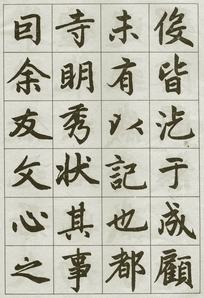 俊皆迄于成顧
未有以記也都
寺明秀狀其事
目余友文心之